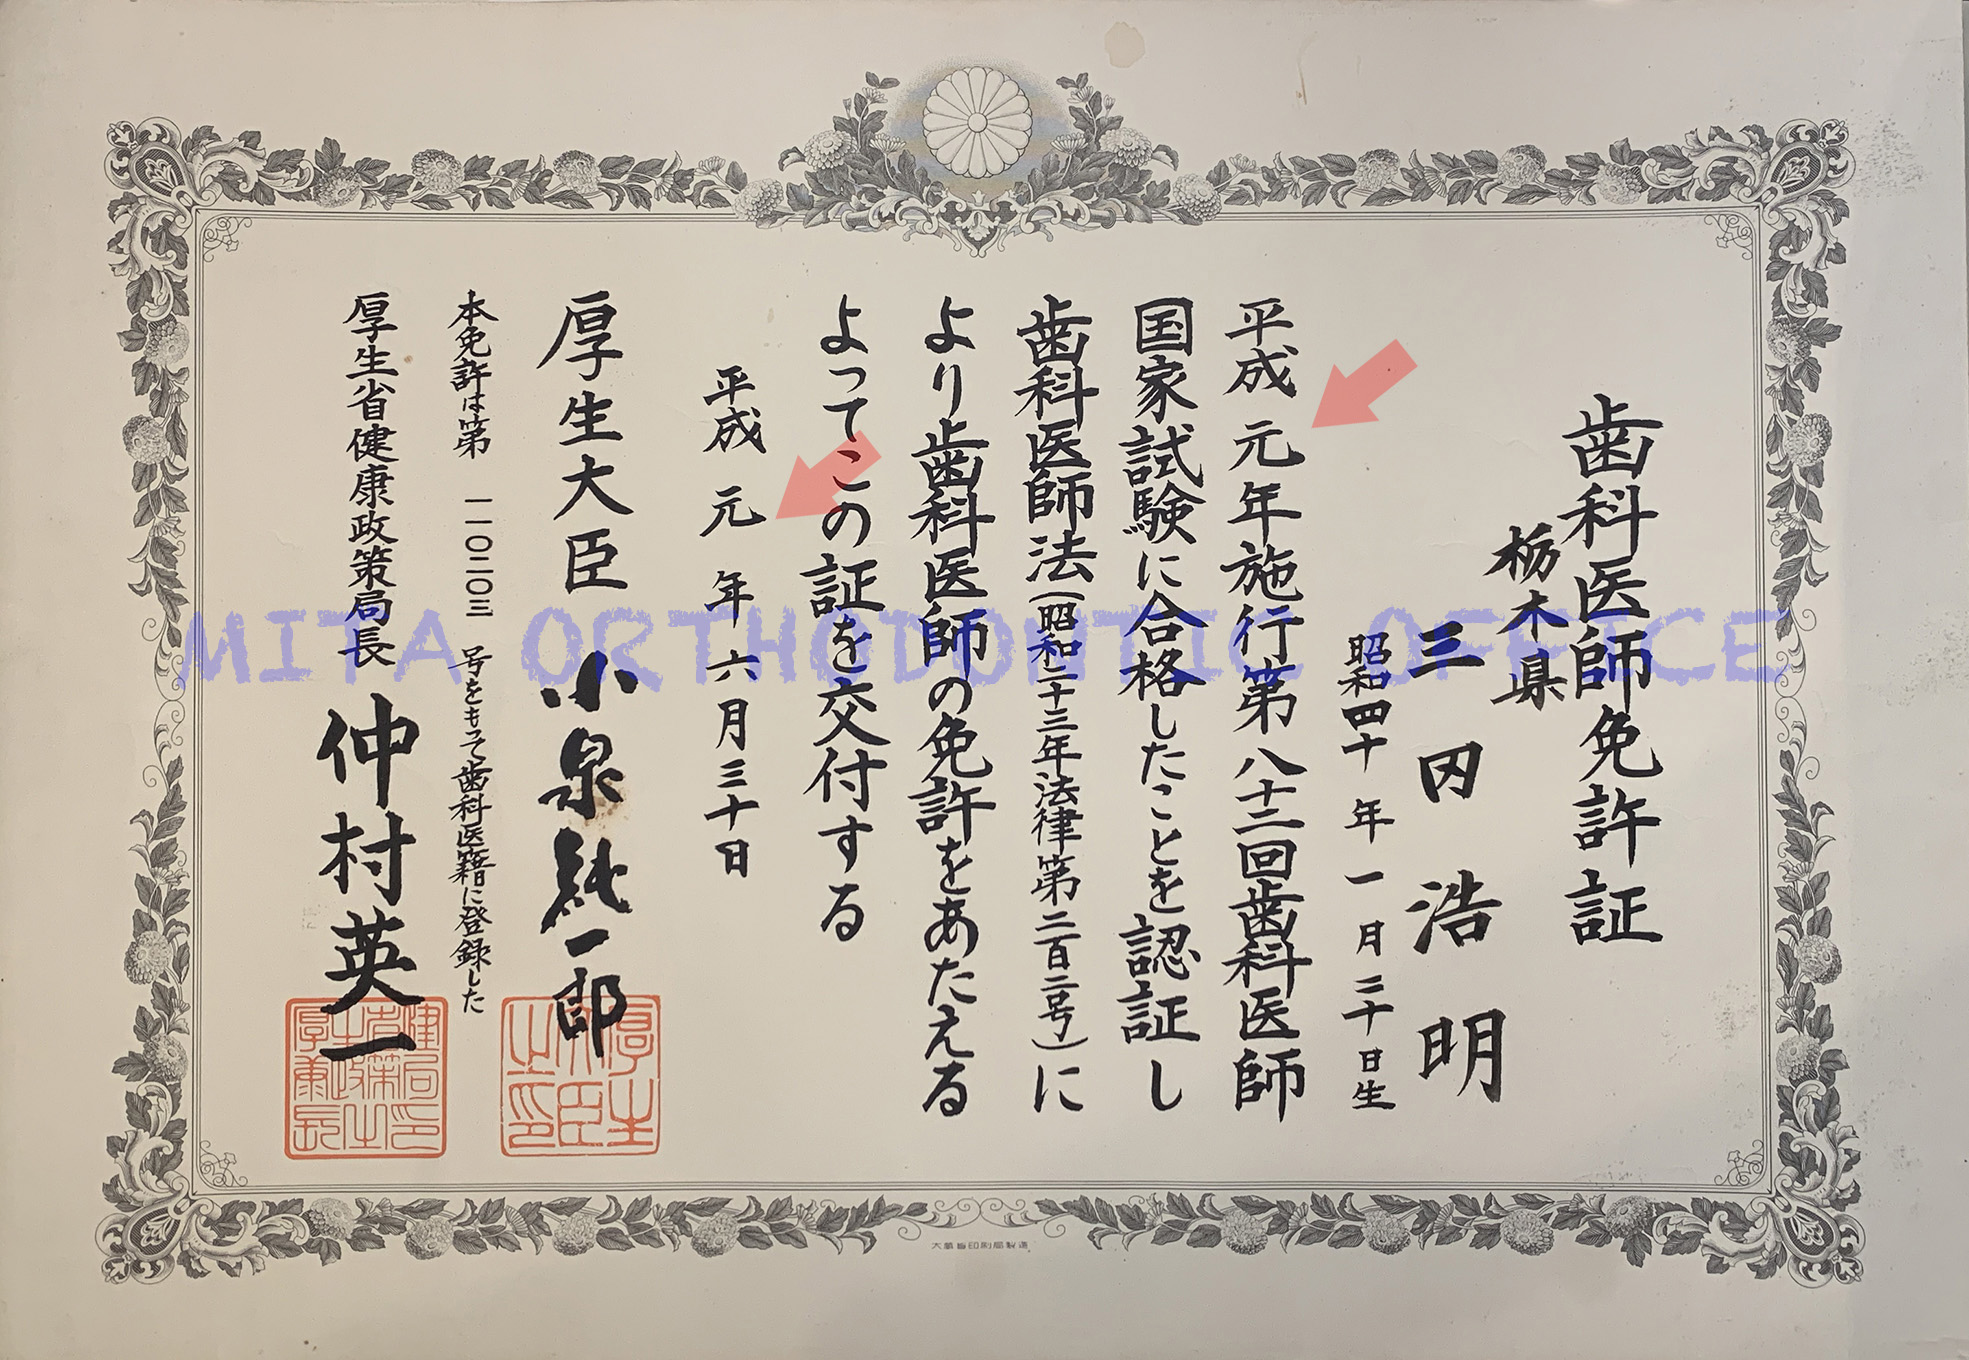 歯科医師免許証
栃木県
三田浩明
昭和四十年一月三十日生
平成元年施行第八十二回歯科医師
国家試験に合格したことを認証し
歯科医師法（昭和二十三年法律第二百二号）に
より歯科医師の免許をあたえる
よってこの証を交付する
平成元年六月三十日
厚生大臣 小泉純一郎
本免許は第一一〇二〇三号をもって歯科医籍に登録した
厚生省健康政策局長 仲村英一
厚生大臣之印
MITA ORTHODONTIC OFFICE
大蔵省印刷局製造